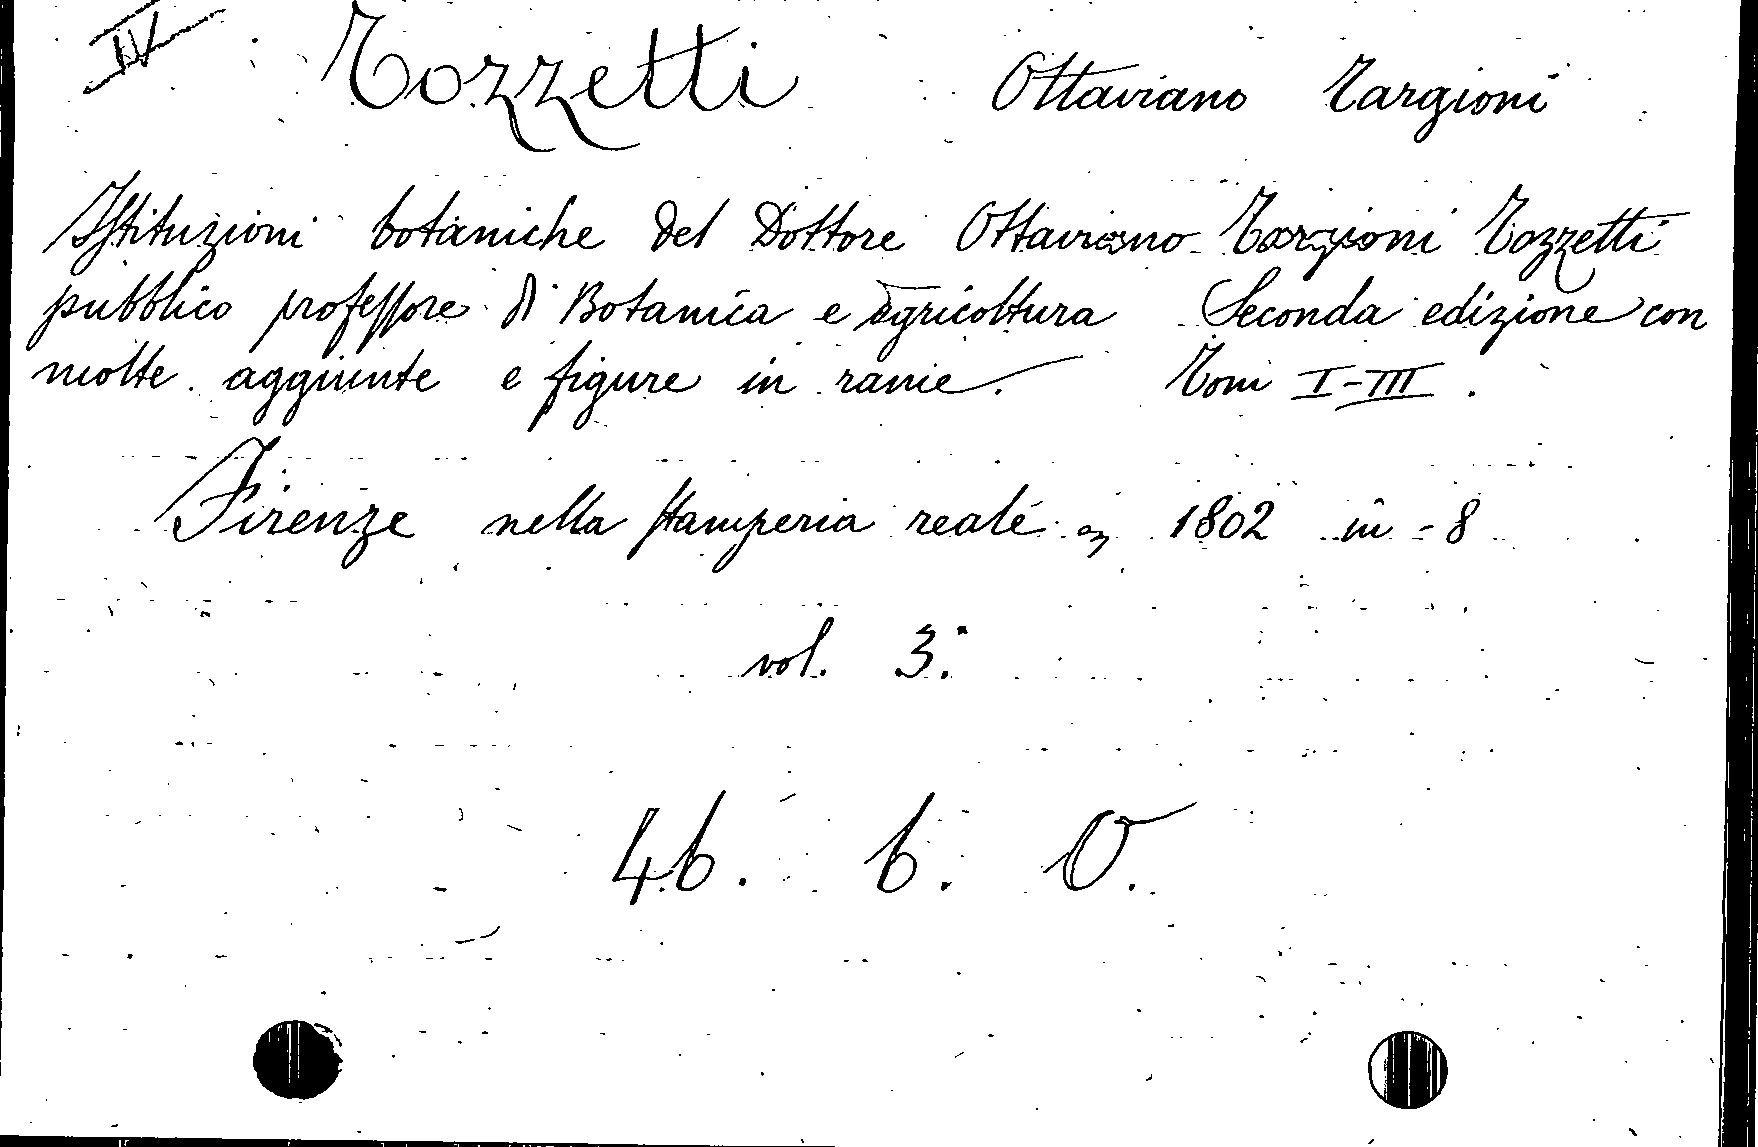 IV Tozzetti Ottaviano Targioni
Istituzioni botaniche del Dottore Ottaviano Targioni Tozzetti
pubblico professore di Botanica e agricoltura Seconda edizione con
molte aggiunte e figure in rame. Tomi I-III.
Firenze nella stamperia reale 1802 in-8
vol. 3.
46. b. O.